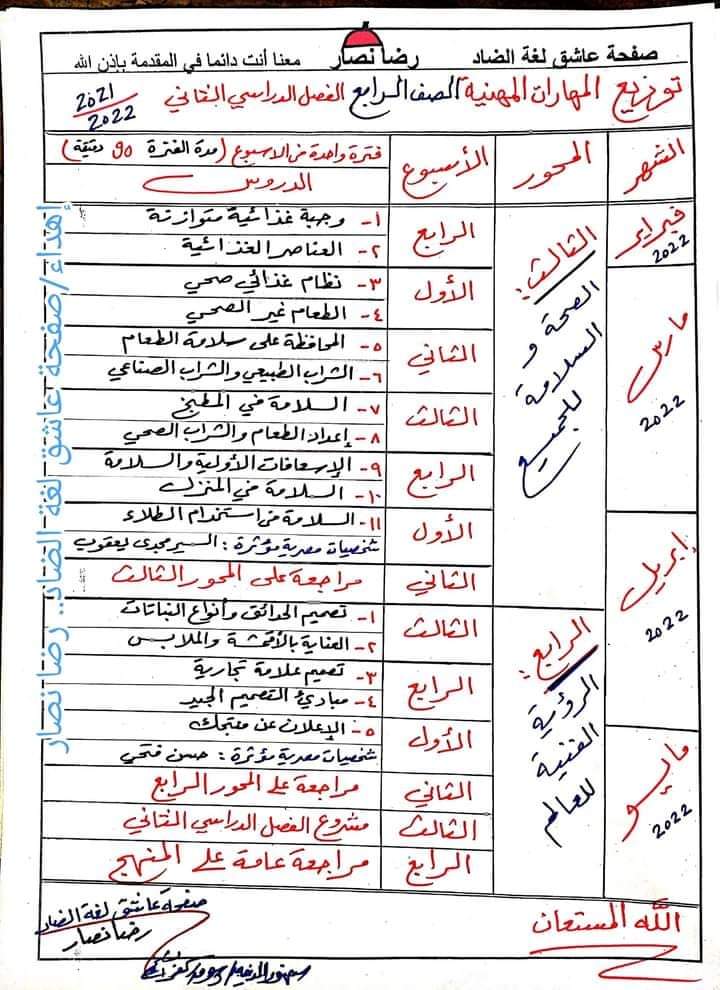 صفحة عاشق لغة الضاد رضا نصار معنا أنت دائما في المقدمة بإذن الله
توزيع المهارات المهنية الصف الرابع الفصل الدراسي الثاني 2021/2022
الشهر المحور الأسبوع فترة واحدة من الاسبوع (مدة الفترة 90 دقيقة)
الدروس
فبراير 2022
مارس 2022
إبريل 2022
مايو 2022
الثالث:
الصحة و
السلامة
للجميع
الرابع:
الرؤية
الفنية
للعالم
الرابع ١- وجبة غذائية متوازنة
٢- العناصر الغذائية
الأول ٣- نظام غذائي صحي
٤- الطعام غير الصحي
الثاني ٥- المحافظة على سلامة الطعام
٦- الشراب الطبيعي والشراب الصناعي
الثالث ٧- السلامة في المطبخ
٨- إعداد الطعام والشراب الصحي
الرابع ٩- الإسعافات الأولية والسلامة
١٠- السلامة في المنزل
الأول ١١- السلامة في استخدام الطلاء
شخصيات مصرية مؤثرة: السير مجدى يعقوب
الثاني مراجعة على المحور الثالث
الثالث ١- تصميم الحدائق وأنواع النباتات
٢- العناية بالأقمشة والملابس
الرابع ٣- تصميم علامة تجارية
٤- مبادئ التصميم الجيد
الأول ٥- الإعلان عن منتجك
شخصيات مصرية مؤثرة: حسن فتحي
الثاني مراجعة على المحور الرابع
الثالث مشروع الفصل الدراسي الثاني
الرابع مراجعة عامة على المنهج
الله المستعان
صفحة عاشق لغة الضاد
رضا نصار
إهداء/صفحة عاشق لغة الضاد.. رضا نصار